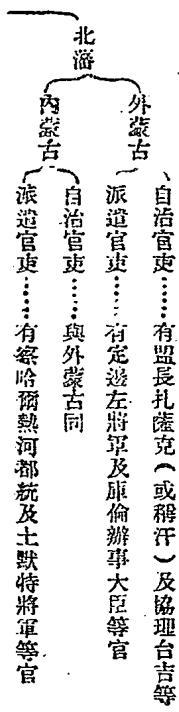 北藩
外蒙古
自治官吏……有盟長扎薩克（或稱汗）及協理台吉等
派遣官吏……有定邊左將軍及庫倫辦事大臣等官
內蒙古
自治官吏……與外蒙古同
派遣官吏……有察哈爾熱河都統及土默特將軍等官